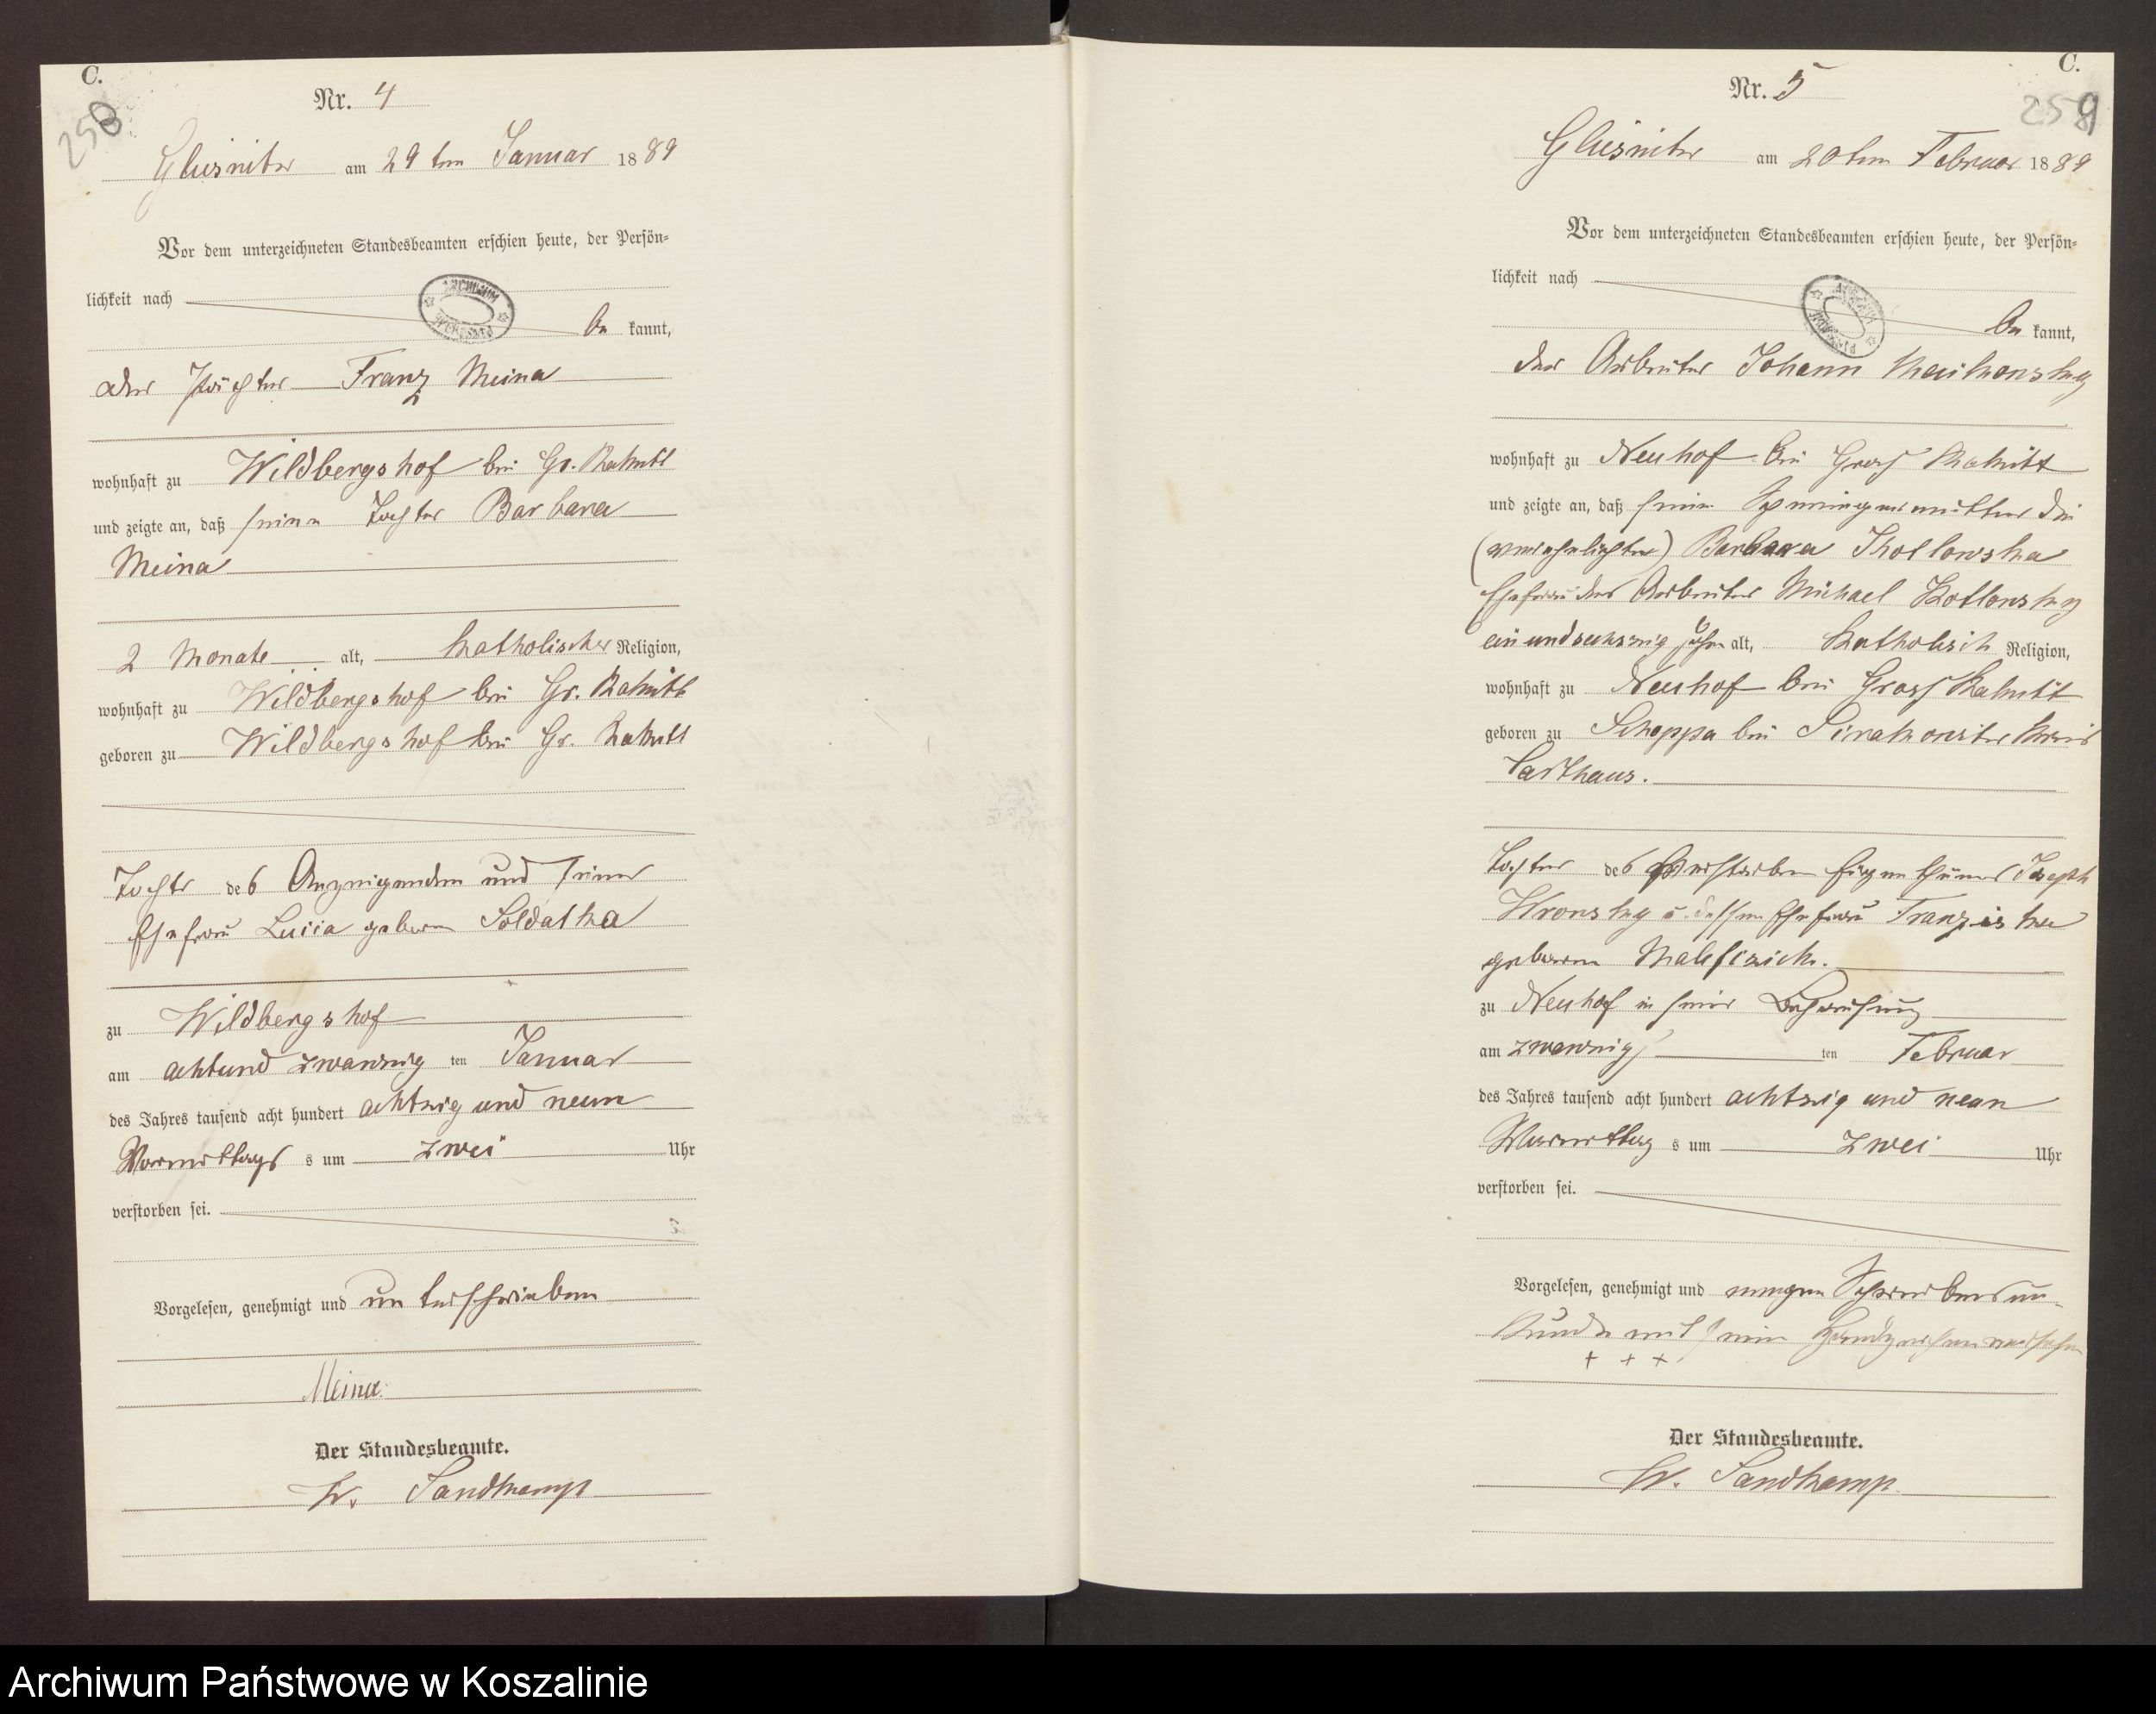 C.
258
Nr. 4
am 29ten Januar 1889
Vor dem unterzeichneten Standesbeamten erschien heute, der Persön=
lichkeit nach
be kannt,
der Pächter Franz Meina
wohnhaft zu Wildbergshof bei Gr. Rakitt
und zeigte an, daß seine Tochter Barbara
Meina
2 Monate alt, katholischer Religion,
wohnhaft zu Wildbergshof bei Gr. Rakitt
geboren zu Wildbergshof bei Gr. Rakitt
Tochter des Anzeigenden und seiner
Ehefrau Lucia geborne Soldatka
zu Wildbergshof
am achtund zwanzig ten Januar
des Jahres tausend acht hundert achtzig und neun
Vormittags s um zwei Uhr
verstorben sei.
Vorgelesen, genehmigt und unterschrieben
Meina.
Der Standesbeamte.
W. Sandkamp
C.
259
Nr. 5
am 20ten Februar 1889
Vor dem unterzeichneten Standesbeamten erschien heute, der Persön=
lichkeit nach
be kannt,
der Arbeiter Johann
wohnhaft zu Neuhof bei Gross Rakitt
und zeigte an, daß seine Schwiegermutter die
(verehelichte) Barbara Kotlowska
Ehefrau des Arbeiters Michael Kotlowsky
ein und sechszig Jahre alt, katholisch Religion,
wohnhaft zu Neuhof bei Gross Rakitt
geboren zu bei Sirakowitz Kreis
Carthaus.
Tochter des verstorben Eigenthümer Joseph
Wronsky u. dessen Ehefrau Franziska
geborne
zu Neuhof in seiner Behausung
am zwanzigs ten Februar
des Jahres tausend acht hundert achtzig und neun
Vormittag s um zwei Uhr
verstorben sei.
Vorgelesen, genehmigt und wegen Schreibens un=
kunde mit sein Handzeichen versehen
+ + +
Der Standesbeamte.
W. Sandkamp
Archiwum Państwowe w Koszalinie